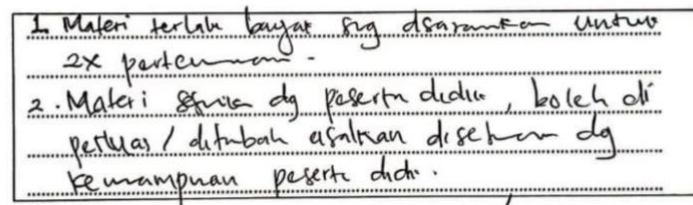 1. Materi terlalu banyak shg disarankan untuk
2x pertemuan.
2. Materi sesuai dg peserta didik, boleh di
perluas / ditambah asalkan disesuaikan dg
kemampuan peserta didik.